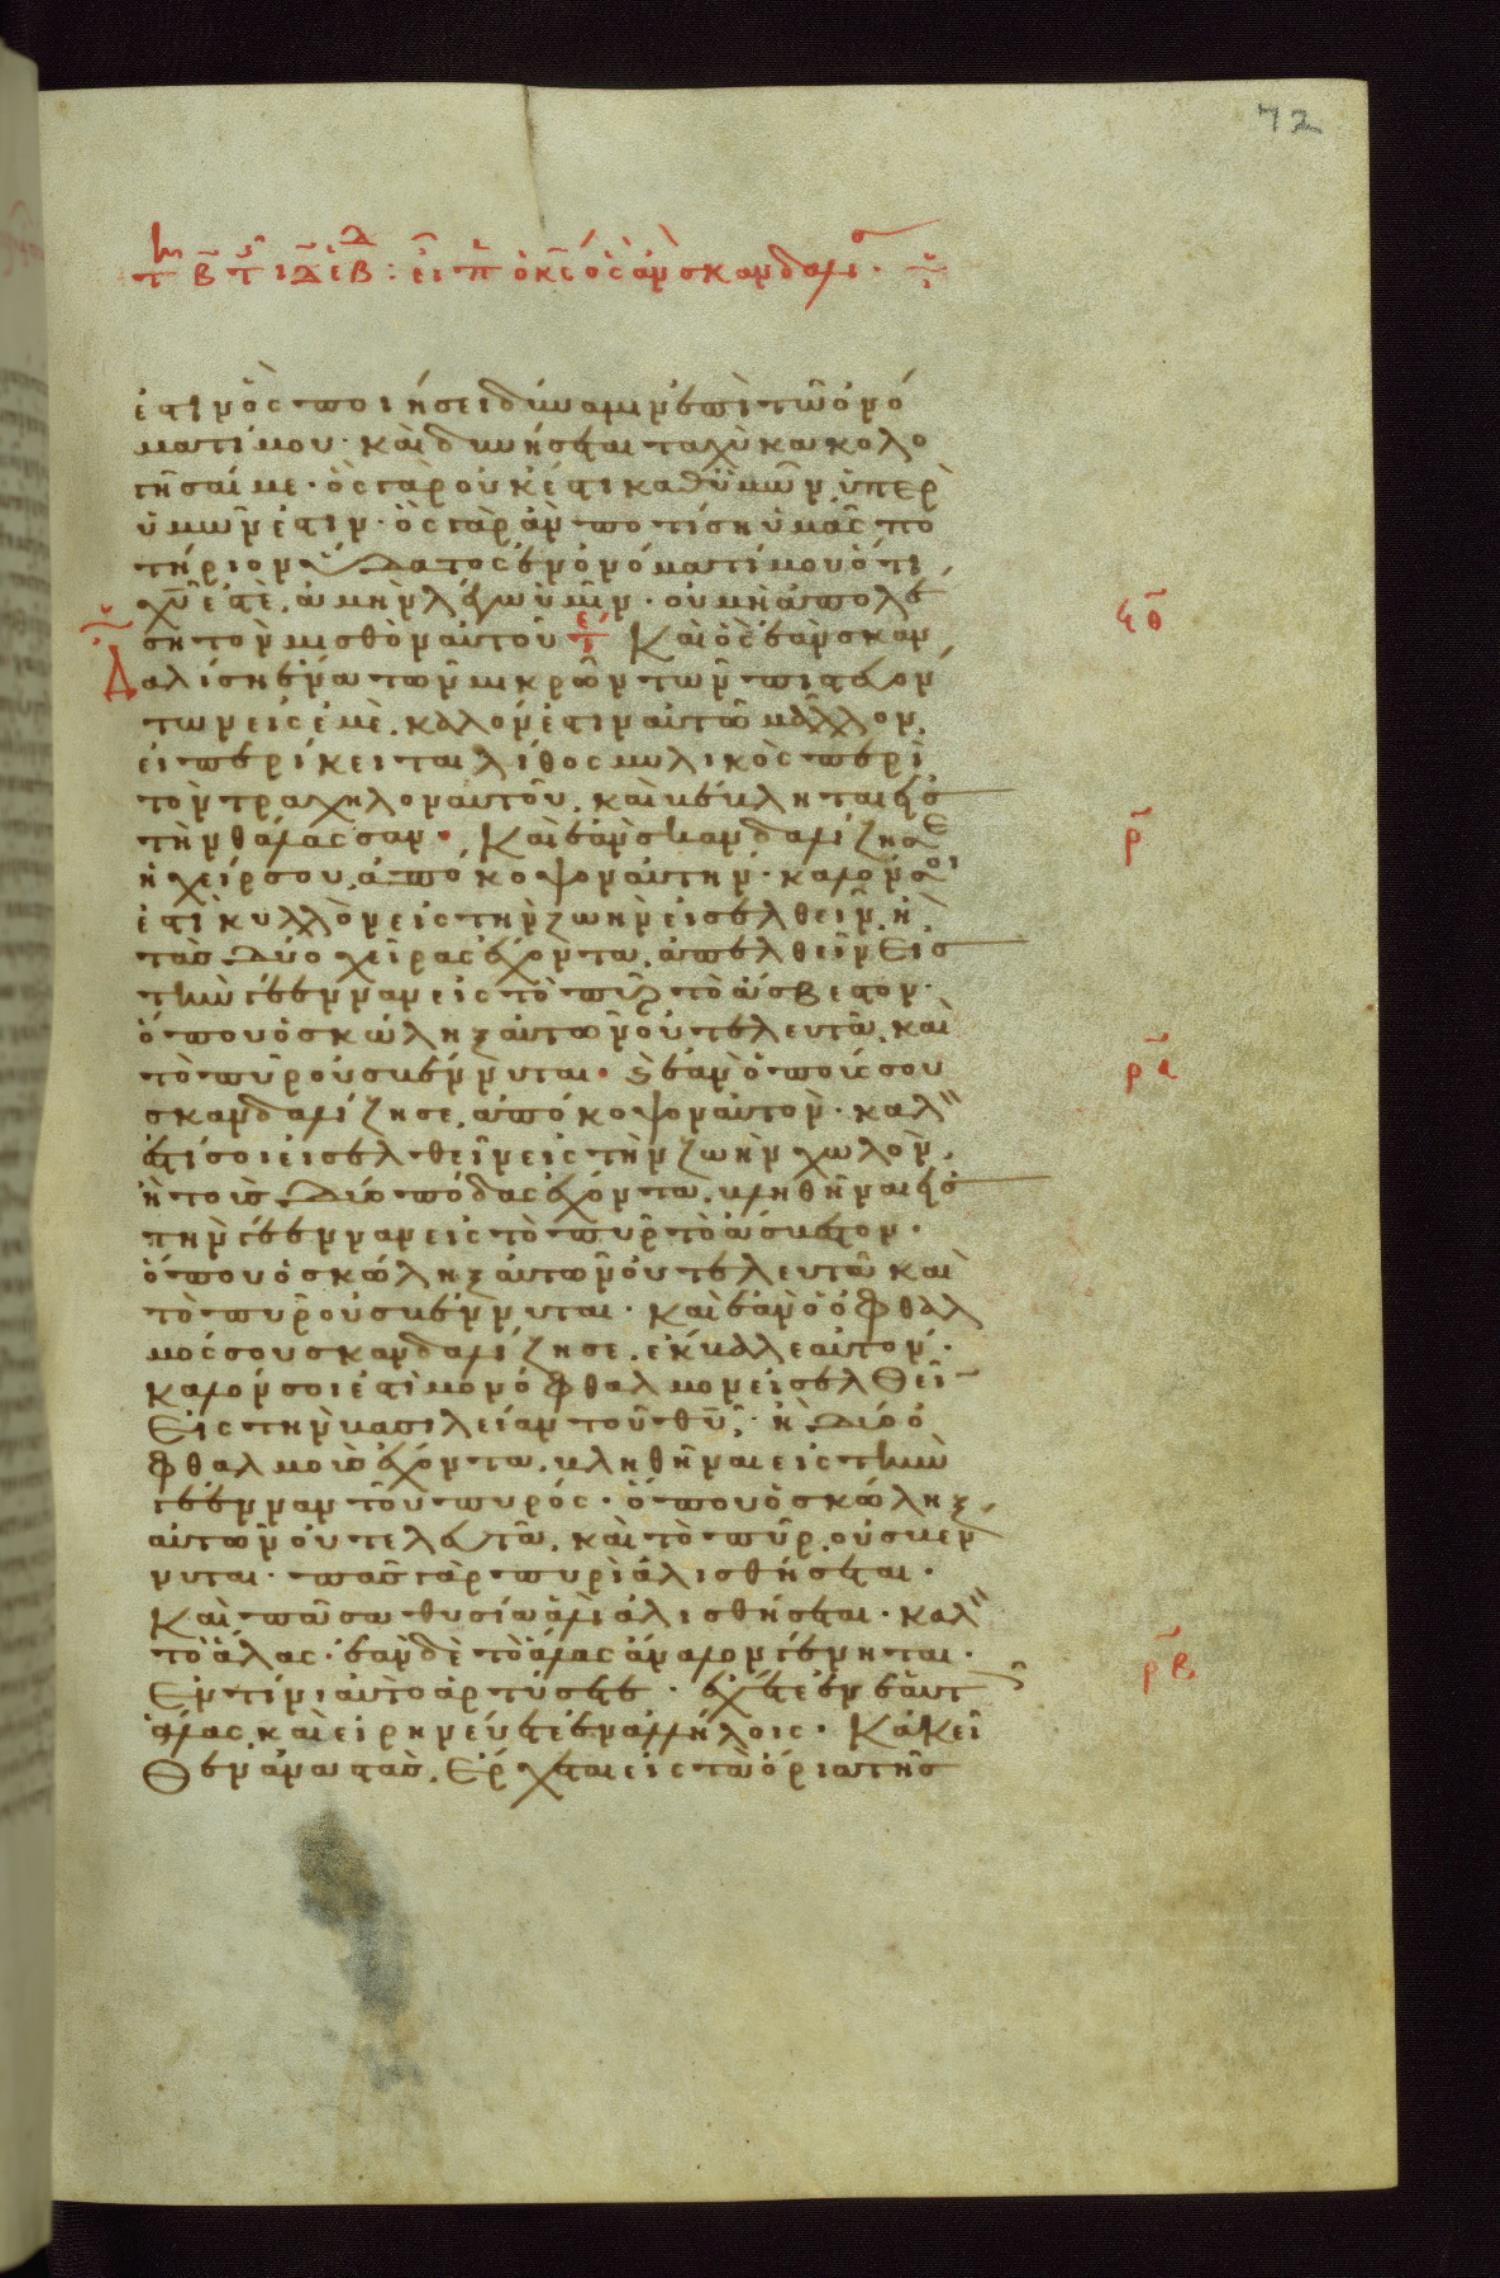 72
τῇ β τῆς ιδ ἑβδ : εἶπεν ὁ κς ὃς ἂν σκανδαλισ
ἐστιν ὃς ποιήσει δύναμιν ἐπὶ τῶ ὀνό
ματί μου· καὶ δυνήσεται ταχὺ κακολο
γῆσαί με· ὃς γὰρ οὐκ ἔστι καθ ὑμῶν, ὑπὲρ
ὑμῶν ἐστιν· ὃς γὰρ ἂν ποτίση ὑμᾶς πο
τήριον ὕδατος ἐν ὀνόματί μου ὅτι
χῦ ἐστὲ, ἀμὴν λέγω ὑμῖν· οὐ μὴ ἀπολέ
ση τὸν μισθὸν αὐτοῦ τε Καὶ ὃς ἐὰν σκαν
δαλίση ἕνα τῶν μικρῶν τῶν πιστευόν
των εἰς ἐμὲ, καλόν ἐστιν αὐτῶ μᾶλλον,
εἰ περίκειται λίθος μυλικὸς περὶ
τὸν τράχηλον αὐτοῦ, καὶ βέβληται εἰς
τὴν θάλασσαν· Καὶ ἐὰν σκανδαλίζη σε
ἡ χείρ σου, ἀπόκοψον αὐτήν· καλόν σοι
ἐστὶ κυλλὸν εἰς τὴν ζωὴν εἰσελθεῖν, ἢ
τὰς δύο χεῖρας ἔχοντα, ἀπελθεῖν εἰς
τὴν γέενναν εἰς τὸ πῦρ τὸ ἄσβεστον·
ὅπου ὁ σκώληξ αὐτῶν οὐ τελευτᾶ, καὶ
τὸ πῦρ οὐ σβέννυται· καὶ ἐὰν ὁ πούς σου
σκανδαλίζη σε, ἀπόκοψον αὐτόν· καλόν
ἐστί σοι εἰσελθεῖν εἰς τὴν ζωὴν χωλὸν,
ἢ τοὺς δύο πόδας ἔχοντα, βληθῆναι εἰς
τὴν γέενναν εἰς τὸ πῦρ τὸ ἄσβεστον·
ὅπου ὁ σκώληξ αὐτῶν οὐ τελευτᾶ καὶ
τὸ πῦρ οὐ σβέννυται· καὶ ἐὰν ὁ ὀφθαλ
μός σου σκανδαλίζη σε, ἔκβαλε αὐτόν·
καλόν σοι ἐστὶ μονόφθαλμον εἰσελθεῖν
Εἰς τὴν βασιλείαν τοῦ θῦ· ἢ δύο ὀ
φθαλμοὺς ἔχοντα, βληθῆναι εἰς τὴν
γέενναν τοῦ πυρός· ὅπου ὁ σκώληξ
αὐτῶν οὐ τελευτᾶ, καὶ τὸ πῦρ, οὐ σβέν
νυται· πᾶς γὰρ πυρὶ ἁλισθήσεται·
Καὶ πᾶσα θυσία ἁλὶ ἁλισθήσεται· καλόν
τὸ ἅλας· ἐὰν δὲ τὸ ἅλας ἄναλον γένηται·
Ἐν τίνι αὐτὸ ἀρτύσετε· ἔχετε ἐν ἑαυτοῖς
ἅλας, καὶ εἰρηνεύετε ἐν ἀλλήλοις· Κἀκεῖ
θεν ἀναστὰς, Ἔρχεται εἰς τὰ ὅρια τῆς
ϟθ
ρ
ρα
ρβ